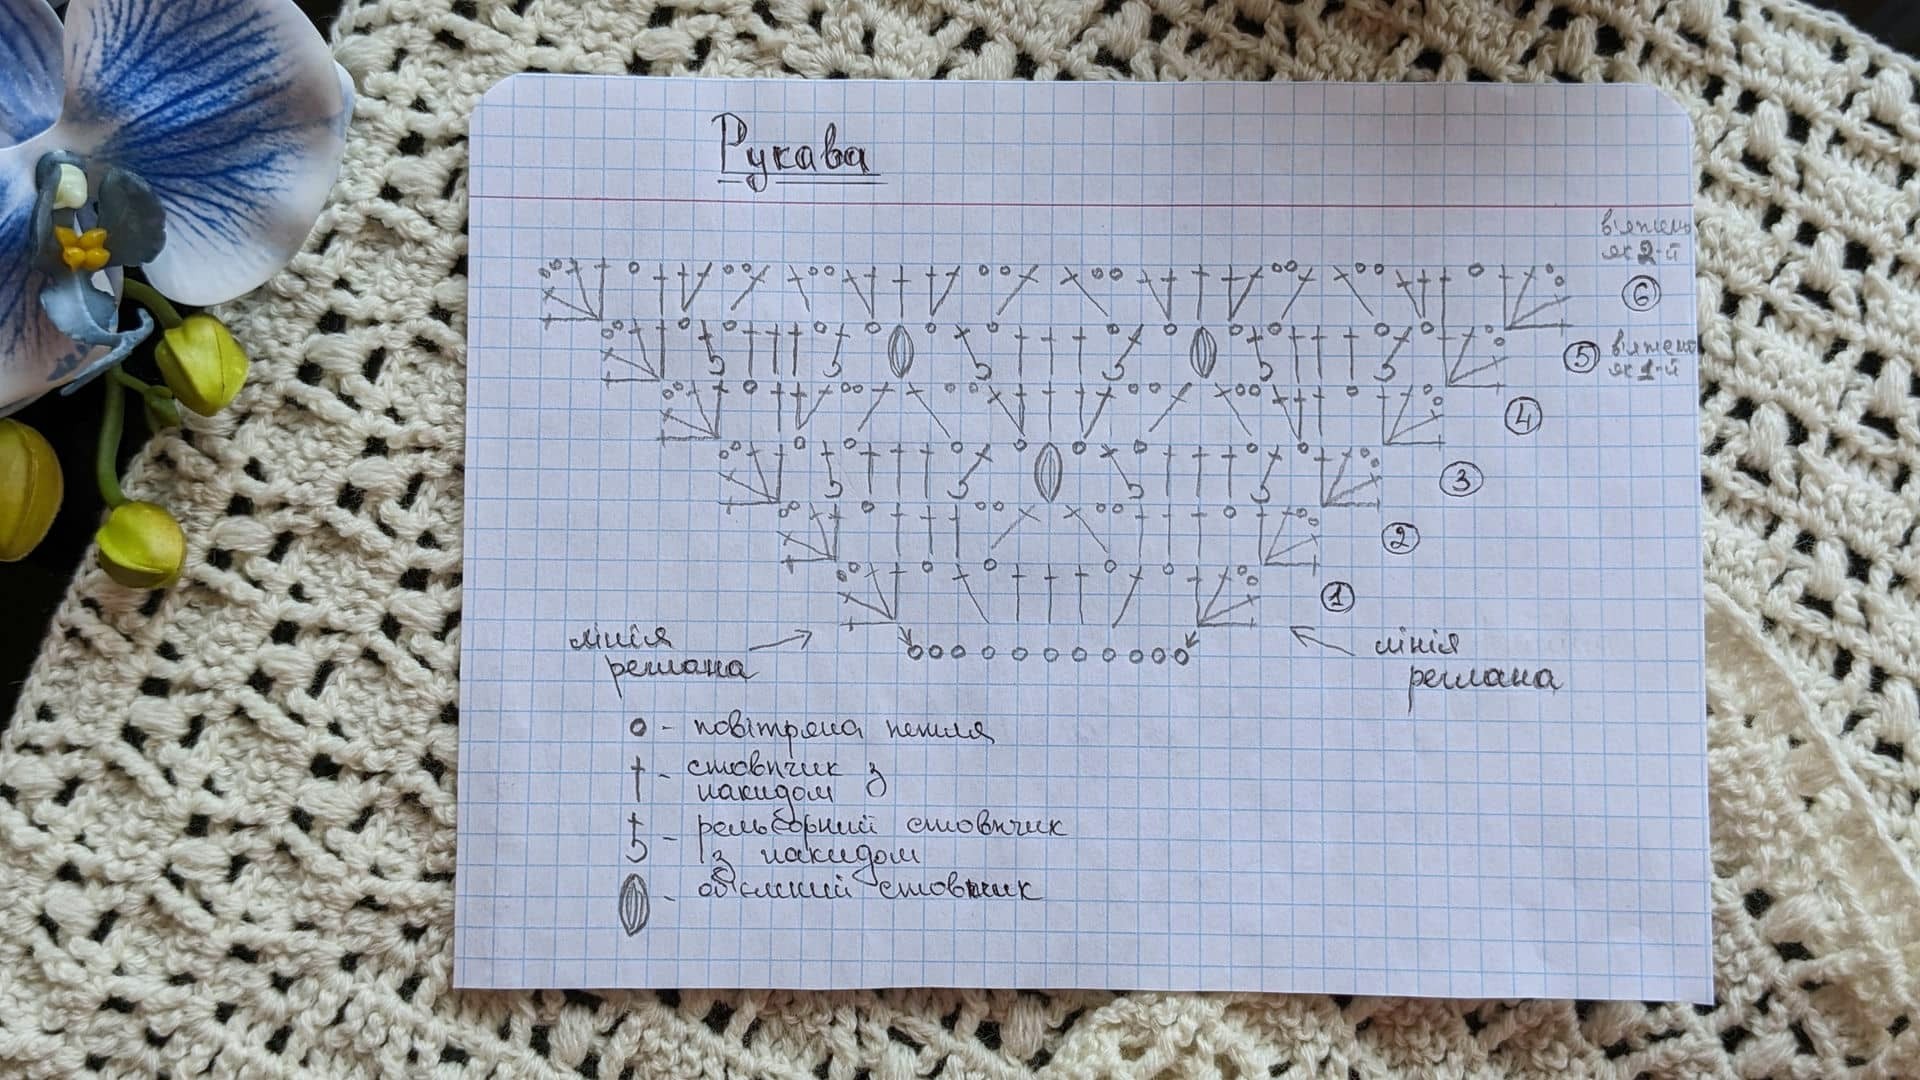 Рукава
в'яжемо
як 2-й
6
5
в'яжемо
як 1-й
4
3
2
1
лінія
реглана
лінія
реглана
- повітряна петля
- стовпчик з
накидом
- рельєфний стовпчик
із накидом
- об'ємний стовпчик